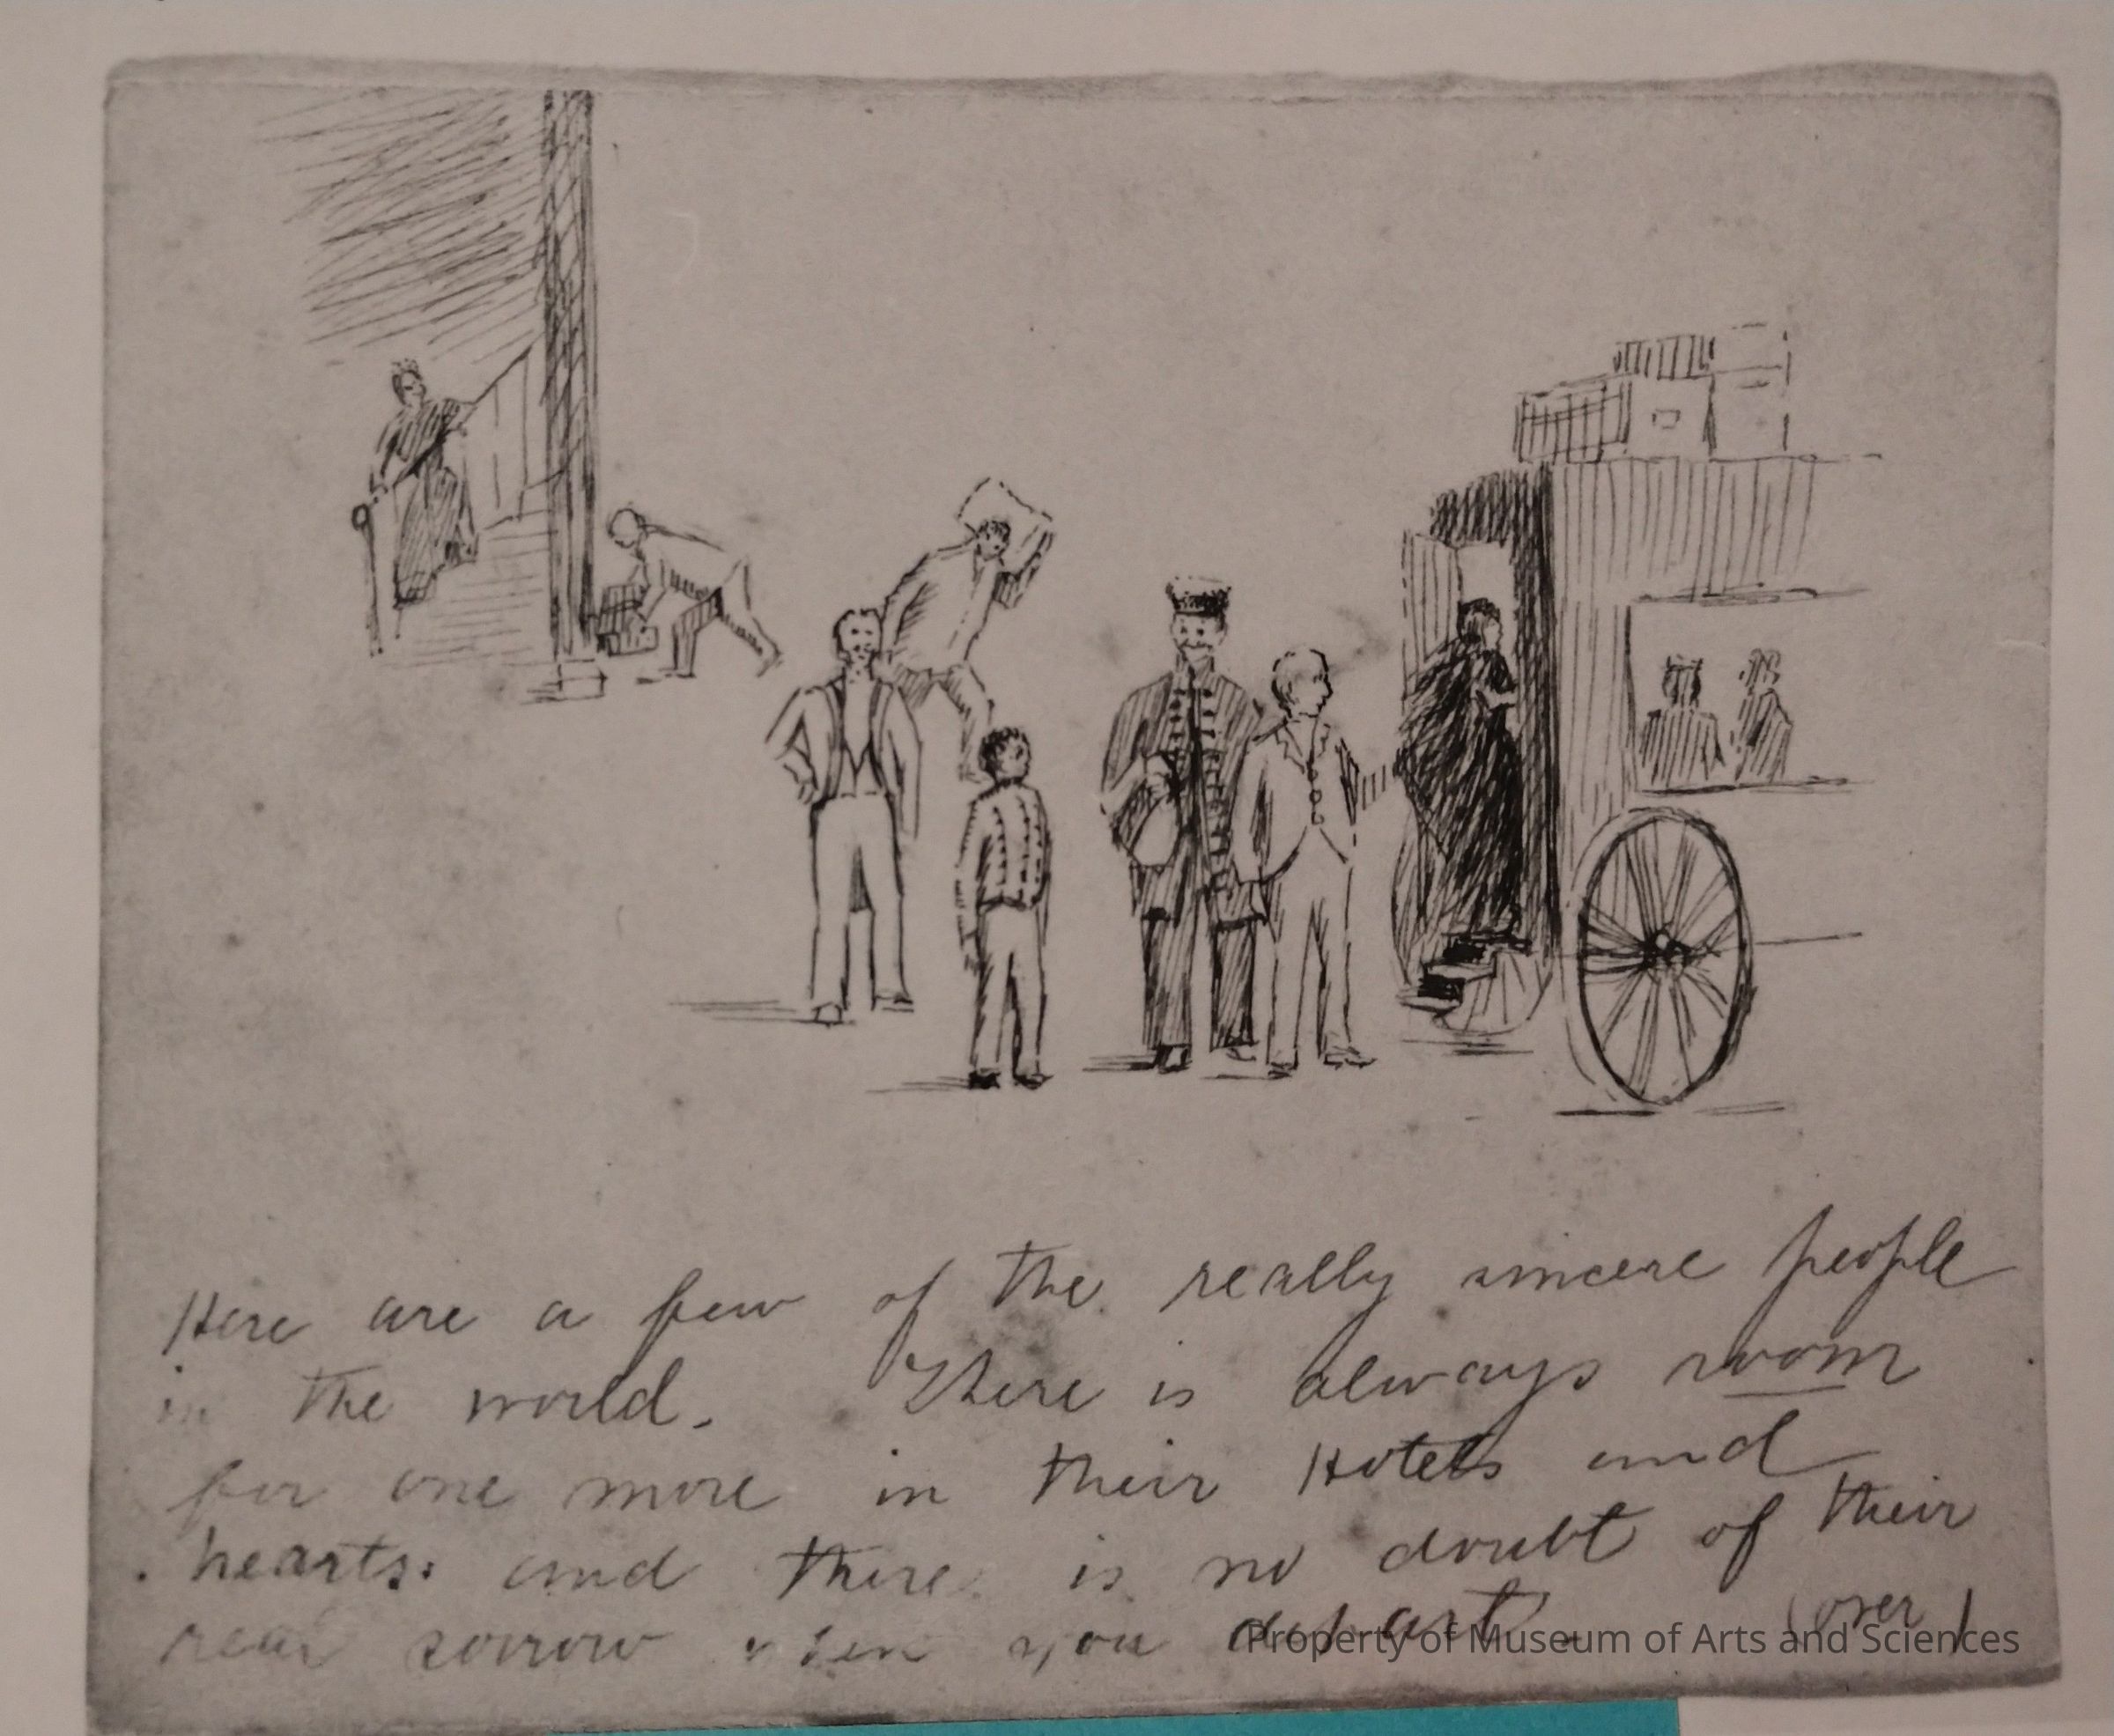 Here are a few of the really sincere people
in the world. There is always room
for one more in their Hotels and
hearts: and there is no doubt of their
real sorrow when you depart (over)
Property of Museum of Arts and Sciences